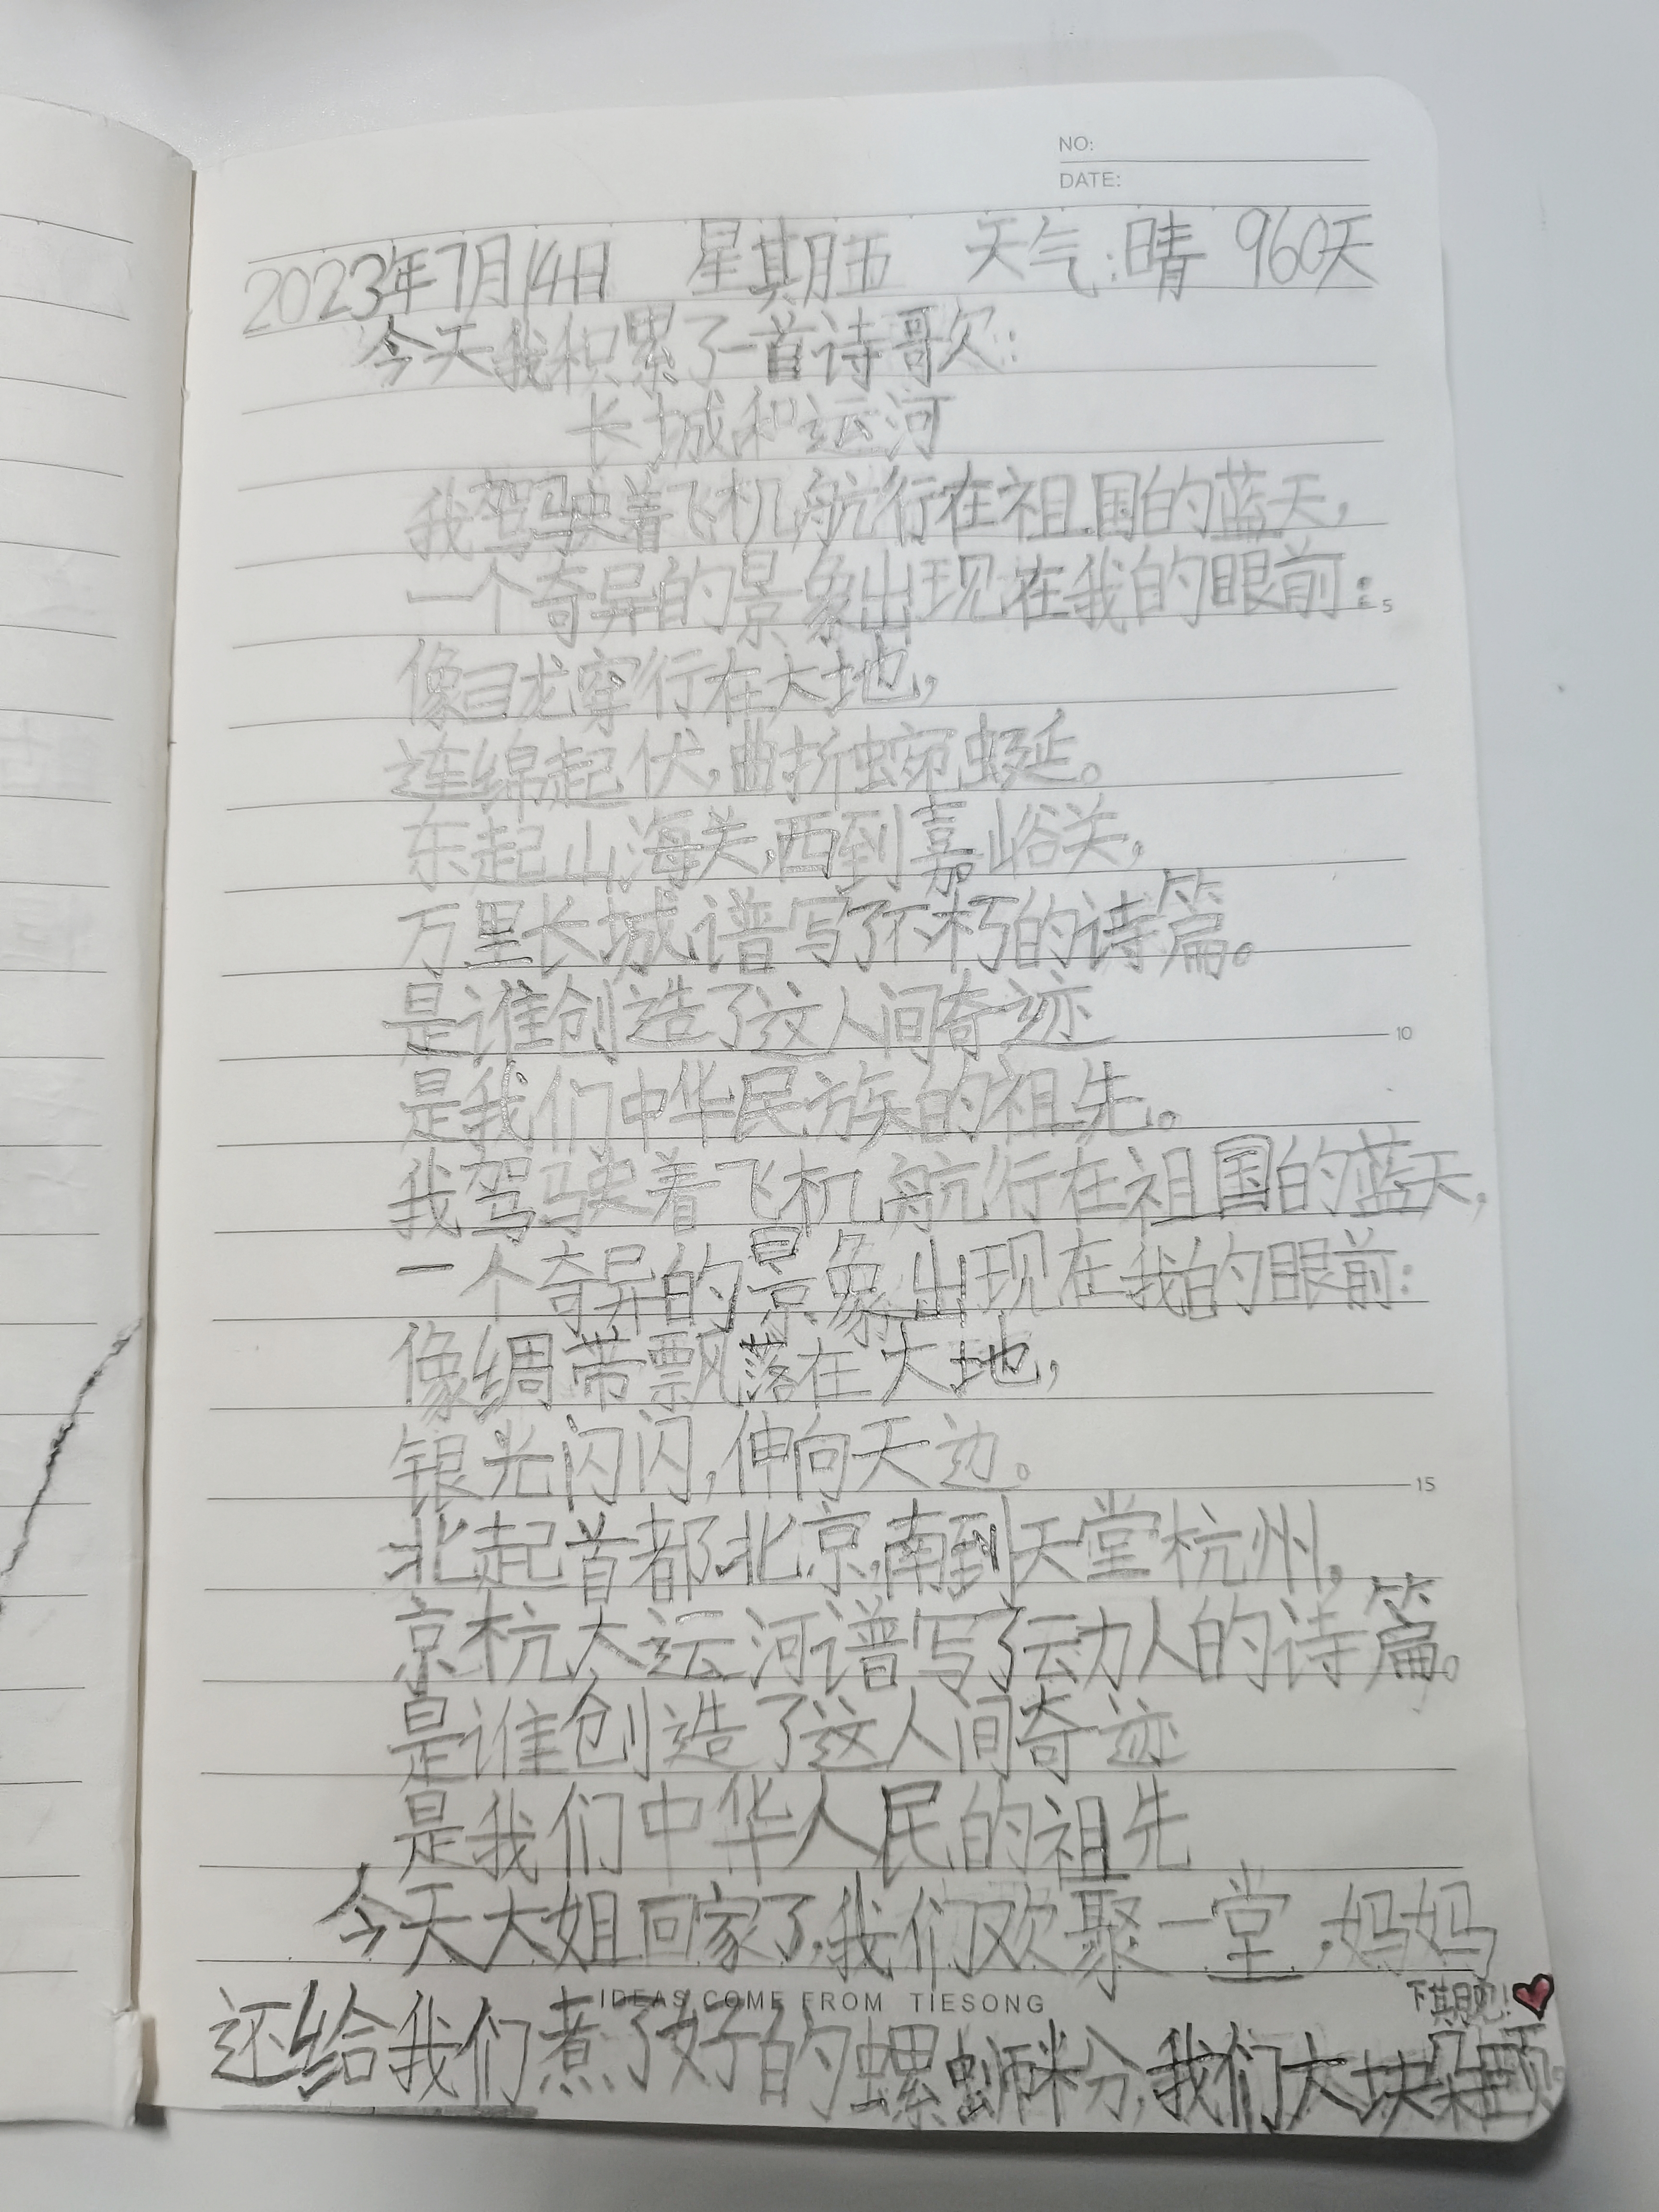 NO:
DATE:
2023年7月14日 星期五 天气:晴 960天
今天我积累了一首诗歌:
长城和运河
我驾驶着飞机航行在祖国的蓝天,
一个奇异的景象出现在我的眼前:
5
像巨龙穿行在大地,
连绵起伏,曲折蜿蜒。
东起山海关,西到嘉峪关,
万里长城谱写了不朽的诗篇。
是谁创造了这人间奇迹
10
是我们中华民族的祖先。
我驾驶着飞机航行在祖国的蓝天,
一个奇异的景象出现在我的眼前:
像绸带飘落在大地,
银光闪闪,伸向天边。
15
北起首都北京,南到天堂杭州,
京杭大运河谱写了动人的诗篇。
是谁创造了这人间奇迹
是我们中华人民的祖先
今天大姐回家了,我们欢聚一堂,妈妈
IDEAS COME FROM TIESONG
下其月见!
还给我们煮了好的螺蛳粉,我们大块朵颐